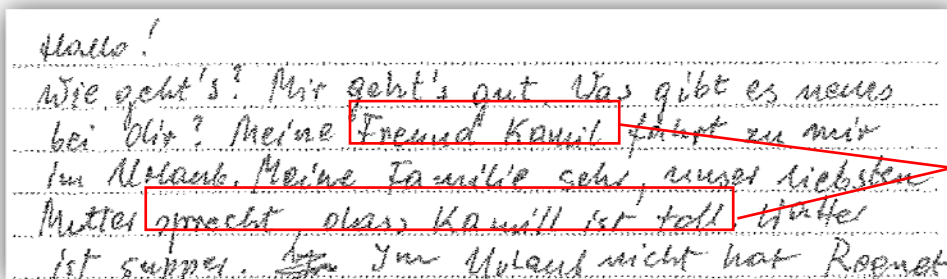 Hallo!
Wie geht's? Mir geht's gut. Was gibt es neues
bei dir? Meine Freund Kamil fährt zu mir
im Urlaub. Meine Familie sehr, unser liebsten
Mutter sprecht, dass Kamill ist toll.
ist supper. Im Urlaub nicht hat Regnet